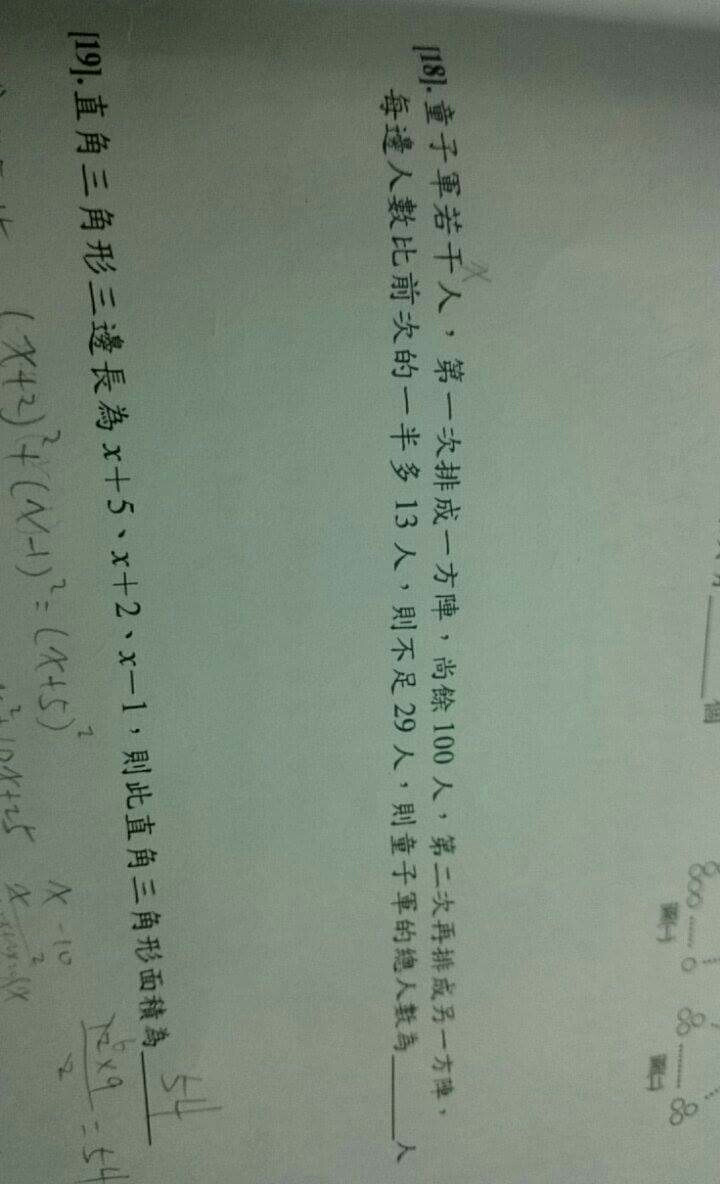 個
圖(一)
圖(二)
[18]. 童子軍若干人，第一次排成一方陣，尚餘 100 人，第二次再排成另一方陣，
x
每邊人數比前次的一半多 13 人，則不足 29 人，則童子軍的總人數為______人
[19]. 直角三角形三邊長為 x+5、x+2、x−1，則此直角三角形面積為______
54
(x+2)²+(x-1)²=(x+5)²
x²+10x+25
x -10
x 2
12×9/2 = 54
6